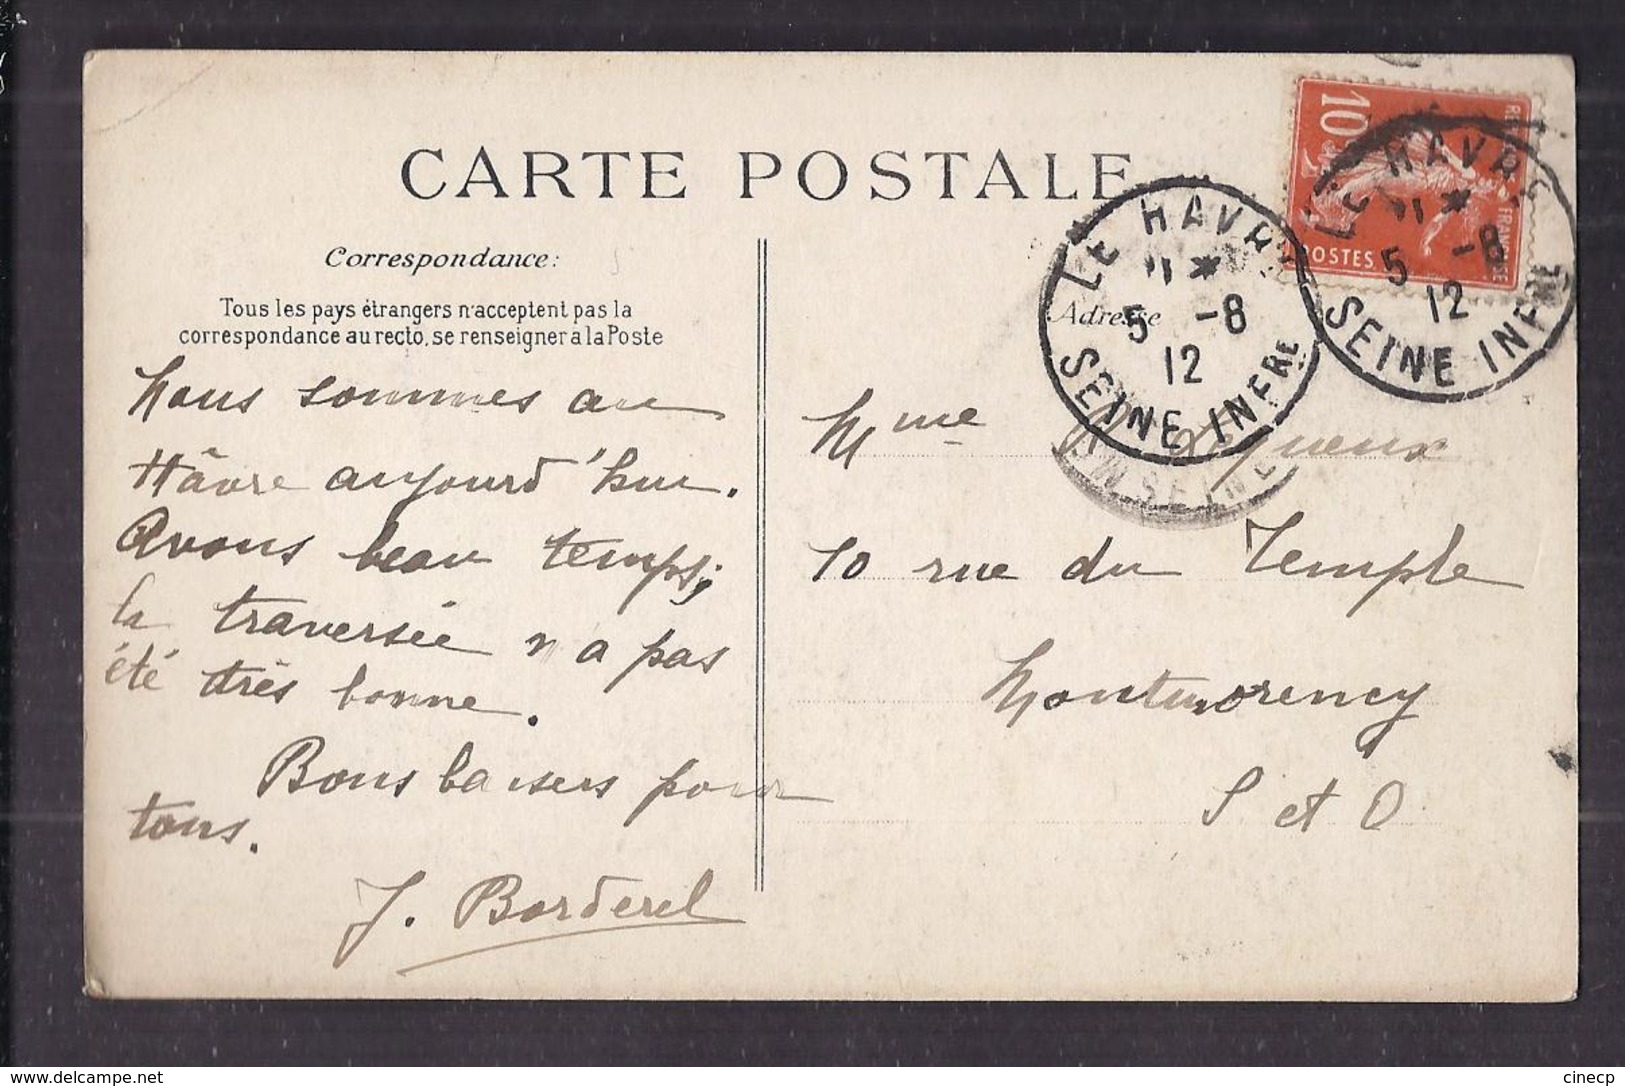 CARTE POSTALE
Correspondance:
Tous les pays étrangers n'acceptent pas la
correspondance au recto, se renseigner à la Poste
Nous sommes au
Hâvre aujourd'hui.
Avons beau temps;
la traversée n'a pas
été très bonne.
Bons baisers pour
tous.
J. Borderel
10
POSTES
LE HAVRE
5 -8
12
SEINE INFRE
LE HAVRE
5 -8
12
SEINE INFRE
Adresse
Mme Lequeux
10 rue du Temple
Montmorency
S et O
cinecp